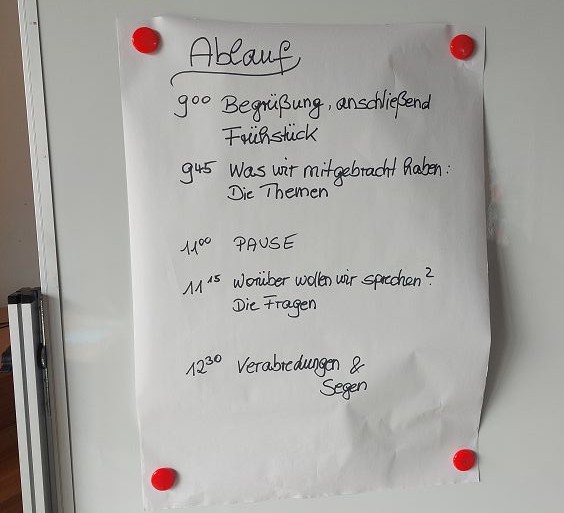 Ablauf
9⁰⁰ Begrüßung, anschließend
Frühstück
9⁴⁵ Was wir mitgebracht haben:
Die Themen
11⁰⁰ PAUSE
11¹⁵ Worüber wollen wir sprechen?
Die Fragen
12³⁰ Verabredungen &
Segen